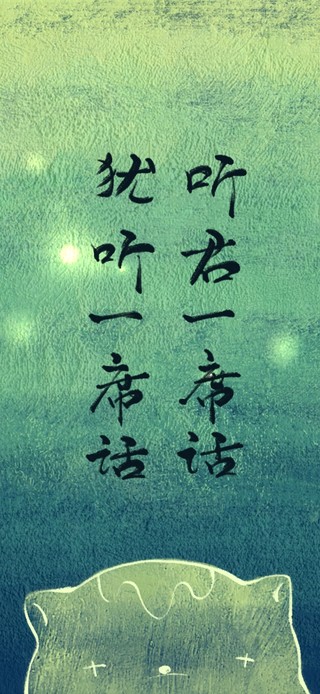 听君一席话
犹听一席话